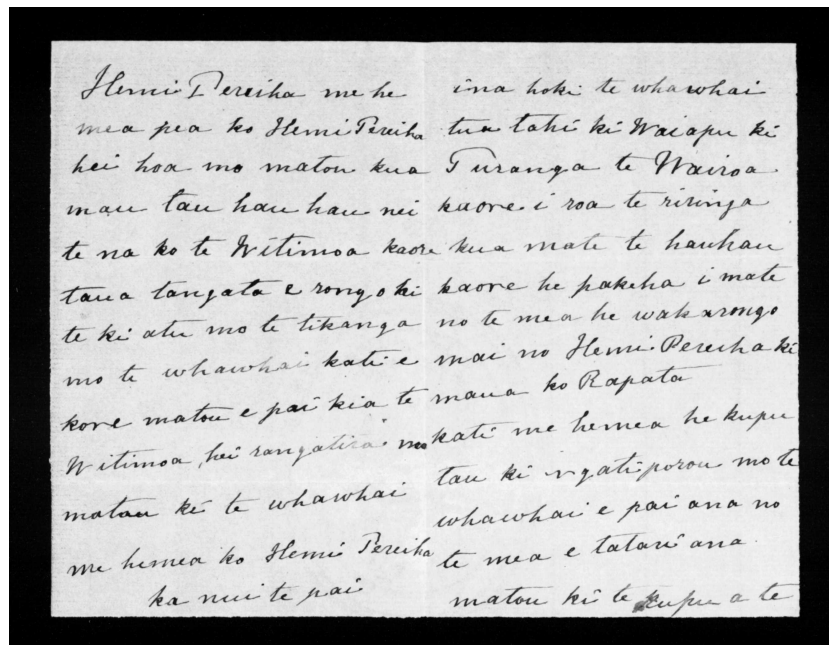 Hemi Pereiha me he
mea pea ko Hemi Pereiha
hei hoa mo matou kua
mau tau hau hau nei
te na ko te Witimoa kaore
taua tangata e rongo ki
te ki atu mo te tikanga
mo te whawhai kati e
kore matou e pai kia te
Witimoa, hei rangatira mo
matau ki te whawhai
me hemea ko Hemi Pereiha
ka nui te pai
ina hoki te whawhai
tua tahi ki Waiapu ki
Turanga te Wairoa
kaore i roa te riringa
kua mate te hauhau
kaore he pakeha i mate
no te mea he wakarongo
mai no Hemi Pereiha ki
maua ko Rapata
kati me hemea he kupu
tau ki ngatiporou mo te
whawhai e pai ana no
te mea e tatari ana
matou ki te kupu a te